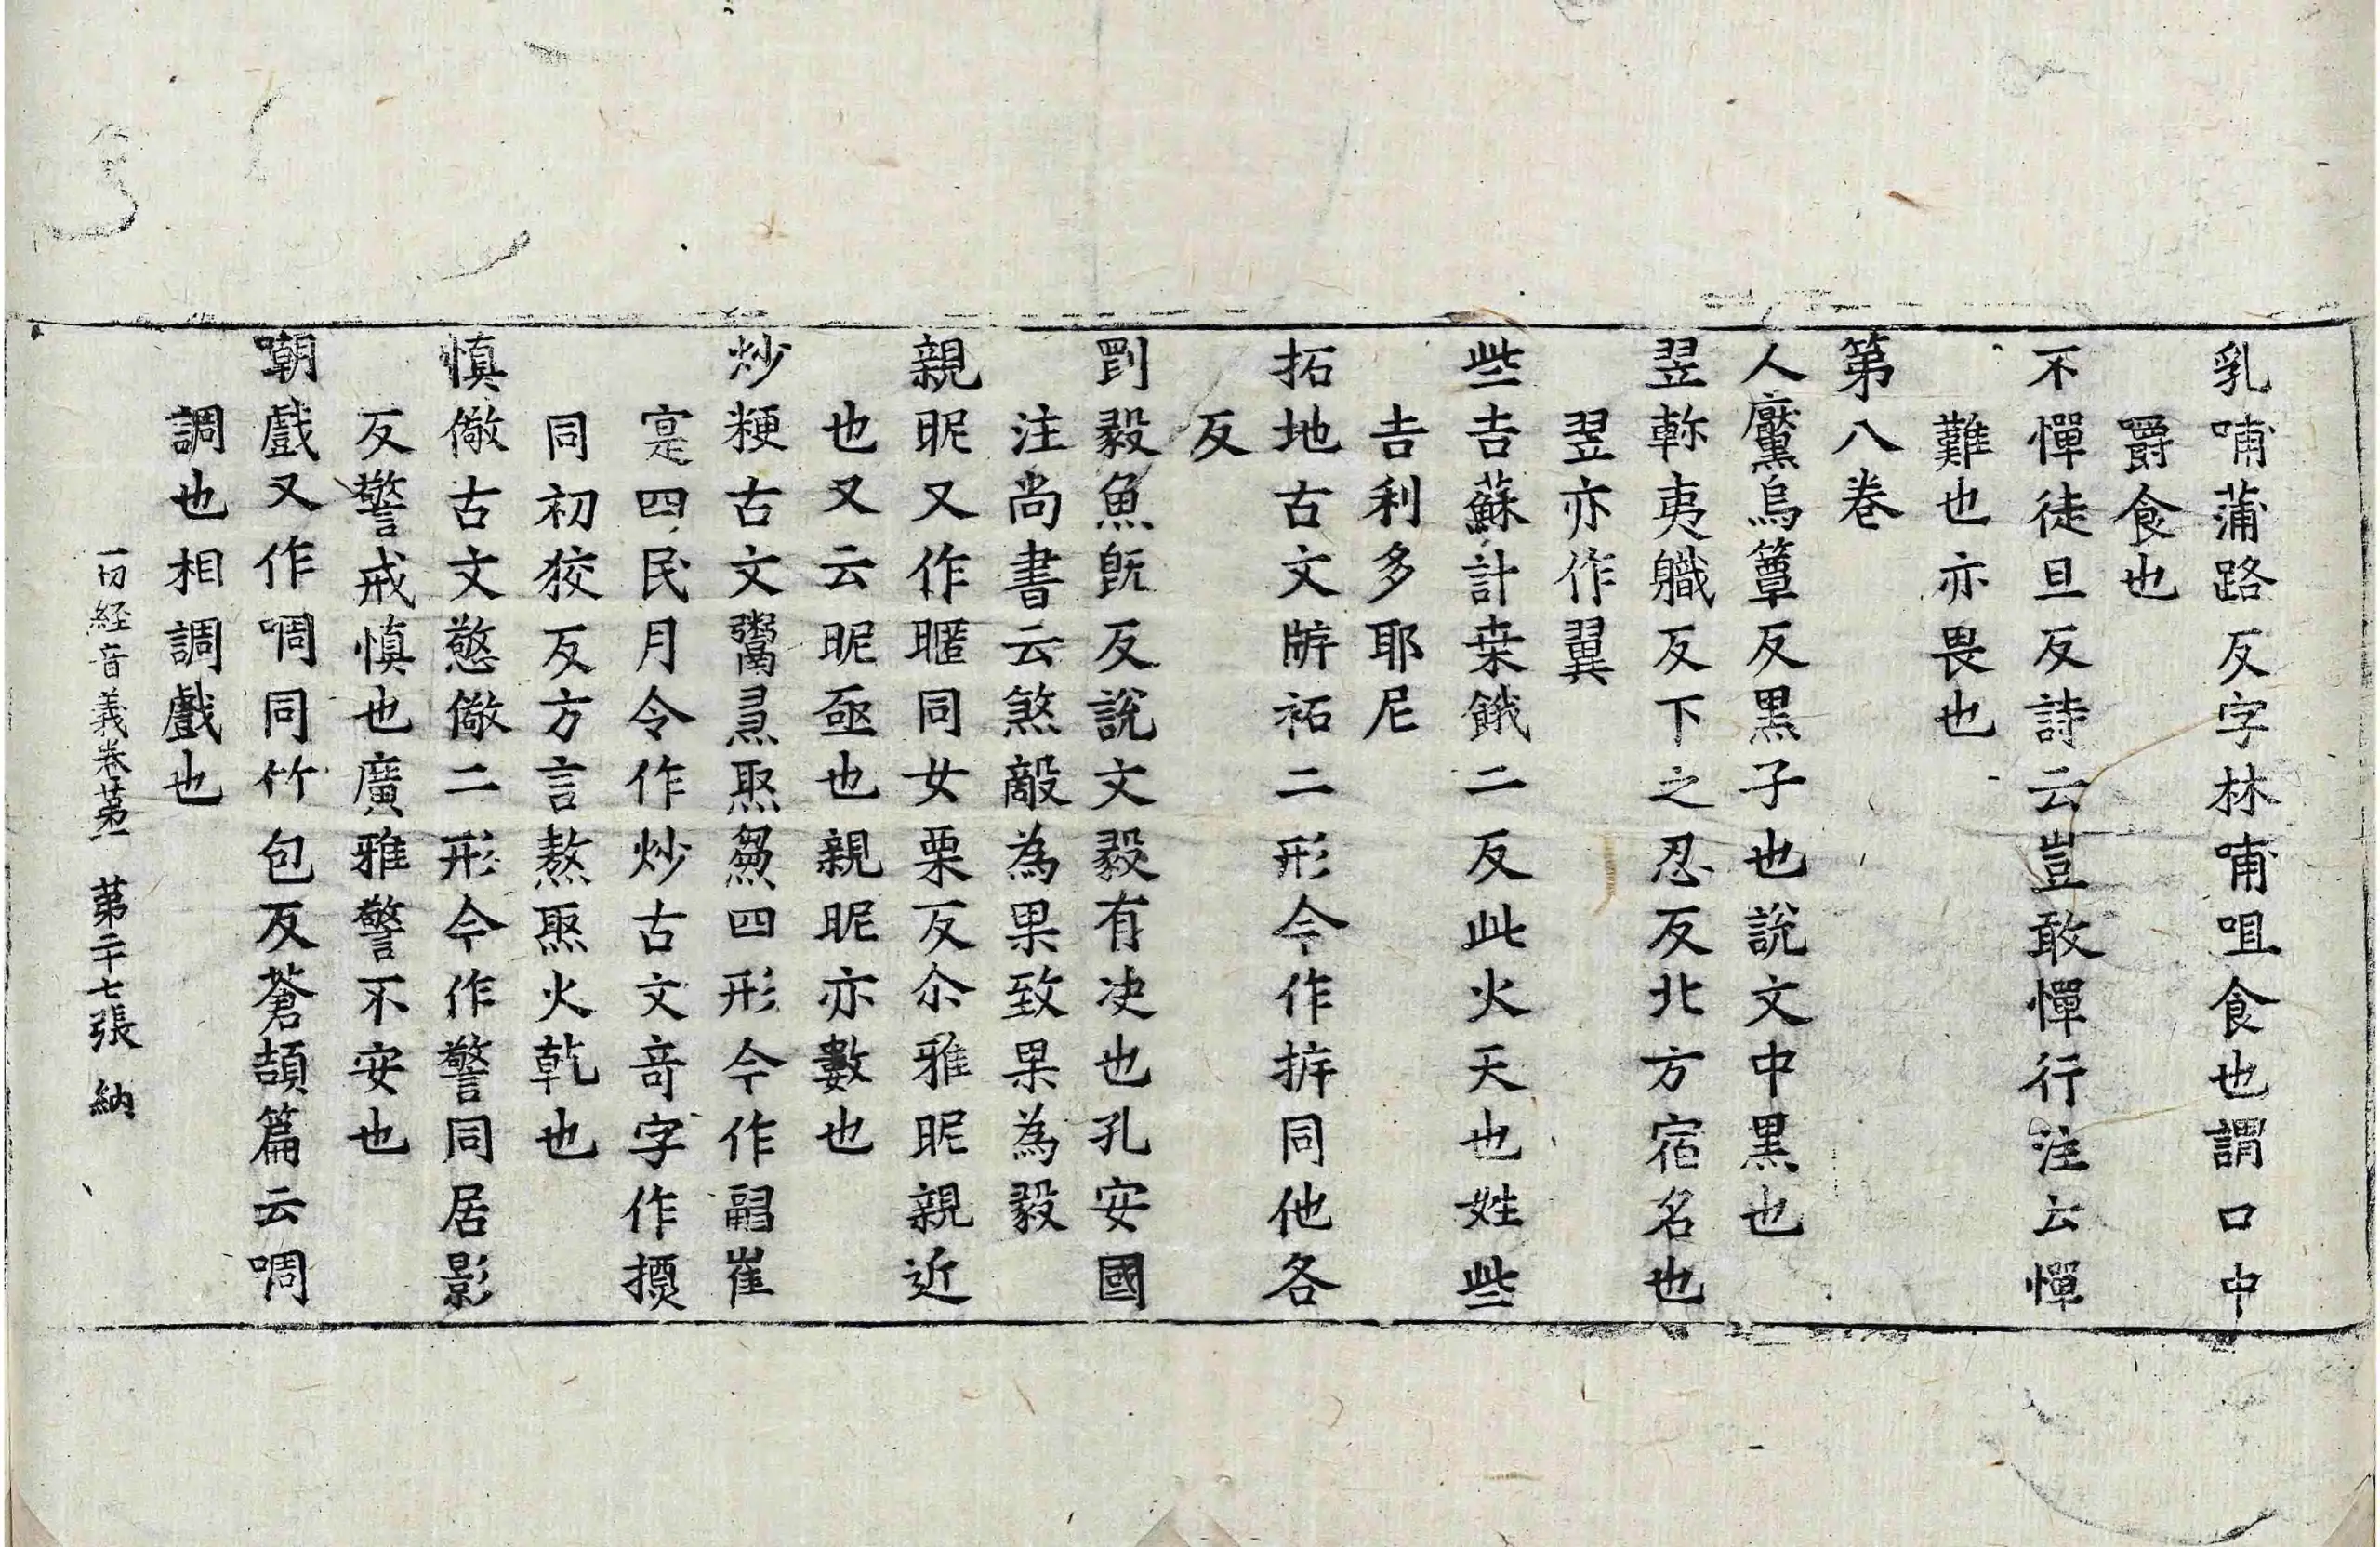 乳哺蒲路反字林哺咀食也謂口中
嚼食也
不憚徒旦反詩云豈敢憚行注云憚
難也亦畏也
第八卷
人黶烏簟反黒子也說文中黒也
翌軫夷職反下之忍反北方宿名也
翌亦作翼
些吉蘇計桒餓二反此火天也姓些
吉利多耶尼
拓地古文㡿祏二形今作㧻同他各
反
剛毅魚旣反說文毅有决也孔安國
注尚書云煞敵為果致果為毅
親昵又作暱同女栗反尒雅昵親近
也又云昵亟也親昵亦數也
炒粳古文䰞㷅焣㷅四形今作䎽崔
寔四民月令作炒古文竒字作㷅
同初狡反方言熬焣火乾也
慎儆古文憼儆二形今作警同居影
反警戒慎也廣雅警不安也
嘲戲又作啁同竹包反蒼頡篇云啁
調也相調戲也
一切経音義卷第一　第二十七張　納